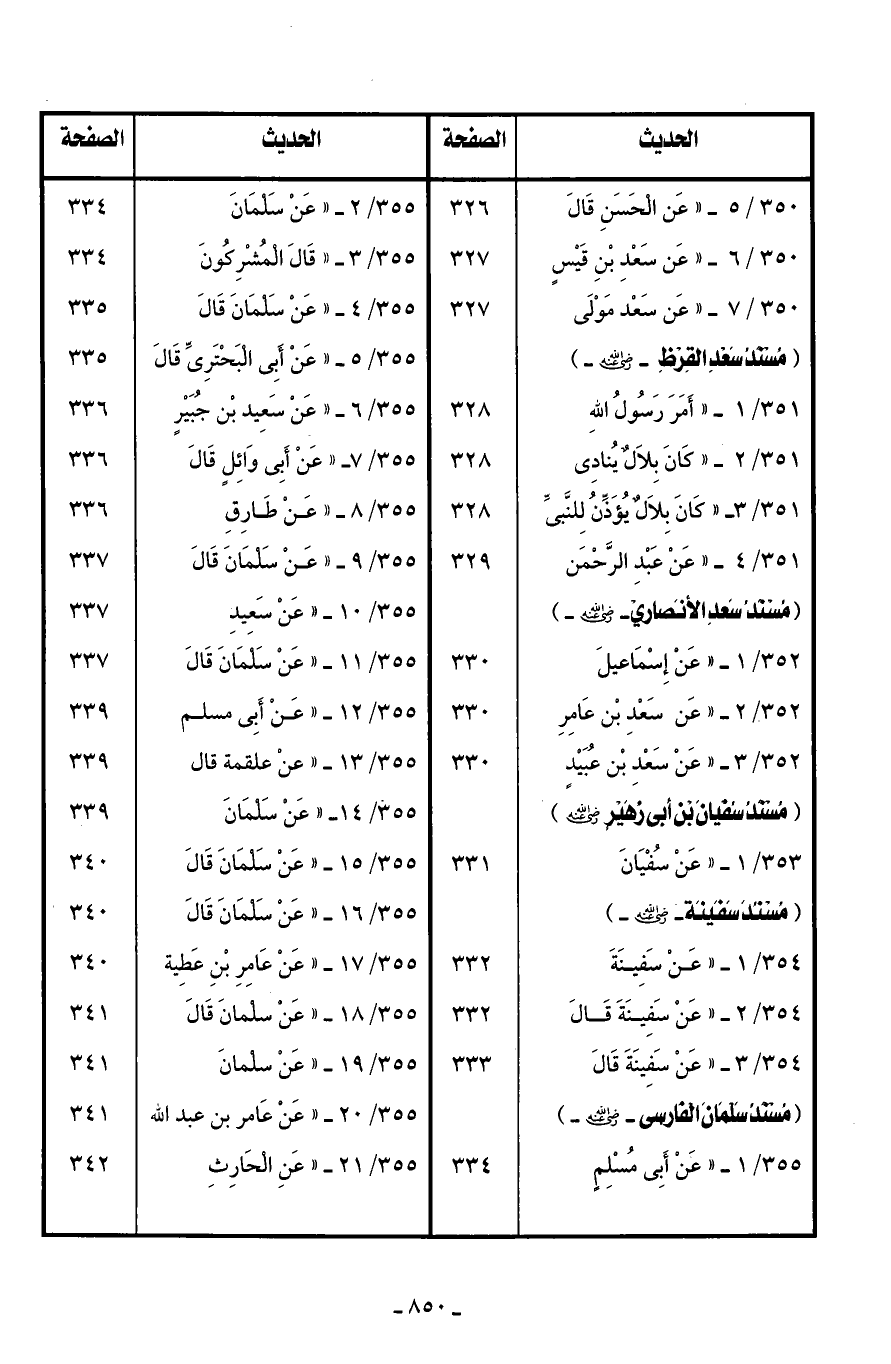 الحديث الصفحة
٣٥٠ / ٥ ـ « عَن الْحَسَنِ قَالَ ٣٢٦
٣٥٠ / ٦ ـ « عَن سَعْدِ بْنِ قَيْسٍ ٣٢٧
٣٥٠ / ٧ ـ « عَن سَعْد مَوْلَى ٣٢٧
( مُسْنَدُ سَعْدِ القرظِ ـ رضي الله عنه ـ )
٣٥١ / ١ ـ « أَمَرَ رَسُولُ الله ٣٢٨
٣٥١ / ٢ ـ « كَانَ بِلاَلٌ يُنَادِى ٣٢٨
٣٥١ / ٣ـ « كَانَ بِلاَلٌ يُؤَذِّنُ للنَّبِىِّ ٣٢٨
٣٥١ / ٤ ـ « عَنْ عَبْدِ الرَّحْمَن ٣٢٩
( مُسْنَدُ سَعدِ الأنْصَارِيْـ رضي الله عنه ـ )
٣٥٢ / ١ ـ « عَنْ إِسْمَاعيلَ ٣٣٠
٣٥٢ / ٢ ـ « عَن سَعْدِ بْنِ عَامِرِ ٣٣٠
٣٥٢ / ٣ ـ « عَنْ سَعْدِ بْنِ عُبَيْدٍ ٣٣٠
( مُسْنَدُ سُفْيَانَ بْنِ أبى زُهَيْرٍ رضي الله عنه )
٣٥٣ / ١ ـ « عَنْ سُفْيَانَ ٣٣١
( مُسْنَدُ سَفِينَةـ رضي الله عنه ـ )
٣٥٤ / ١ ـ « عَـنْ سَفِينَةَ ٣٣٢
٣٥٤ / ٢ ـ « عَنْ سَفِينَةَ قَـالَ ٣٣٢
٣٥٤ / ٣ ـ « عَنْ سَفِينَةَ قَالَ ٣٣٣
( مُسْنَدُ سَلْمَانَ الْفَارِسى ـ رضي الله عنه ـ )
٣٥٥ / ١ ـ « عَنْ أَبِى مُسْلِمٍ ٣٣٤
الحديث الصفحة
٣٥٥ / ٢ ـ « عَنْ سَلْمَانَ ٣٣٤
٣٥٥ / ٣ ـ « قَالَ الْمُشْرِكُونَ ٣٣٤
٣٥٥ / ٤ ـ « عَنْ سَلْمَانَ قَالَ ٣٣٥
٣٥٥ / ٥ ـ « عَنْ أَبِى الْبَحْتَرِىِّ قَالَ ٣٣٥
٣٥٥ / ٦ ـ « عَنْ سَعِيد بْنِ جُبَيْرٍ ٣٣٦
٣٥٥ / ٧ـ « عَنْ أَبِى وَائِلٍ قَالَ ٣٣٦
٣٥٥ / ٨ ـ « عَـنْ طَـارِقٍ ٣٣٦
٣٥٥ / ٩ ـ « عَـنْ سَلْمَانَ قَالَ ٣٣٧
٣٥٥ / ١٠ ـ « عَنْ سَعِيدِ ٣٣٧
٣٥٥ / ١١ ـ « عَنْ سَلْمَانَ قَالَ ٣٣٧
٣٥٥ / ١٢ ـ « عَـنْ أَبِى مسلـم ٣٣٩
٣٥٥ / ١٣ ـ « عنْ علقمة قال ٣٣٩
٣٥٥ / ١٤ـ « عَنْ سَلْمَانَ ٣٣٩
٣٥٥ / ١٥ ـ « عَنْ سَلْمَانَ قَالَ ٣٤٠
٣٥٥ / ١٦ ـ « عَنْ سَلْمَانَ قَالَ ٣٤٠
٣٥٥ / ١٧ ـ « عَنْ عَامِرِ بْنِ عَطِية ٣٤٠
٣٥٥ / ١٨ ـ « عَنْ سلْمانَ قَالَ ٣٤١
٣٥٥ / ١٩ ـ « عَنْ سلْمانَ ٣٤١
٣٥٥ / ٢٠ ـ « عَنْ عَامر بن عبد الله ٣٤١
٣٥٥ / ٢١ ـ « عَنِ الْحَارِثِ ٣٤٢
ـ ٨٥٠ ـ